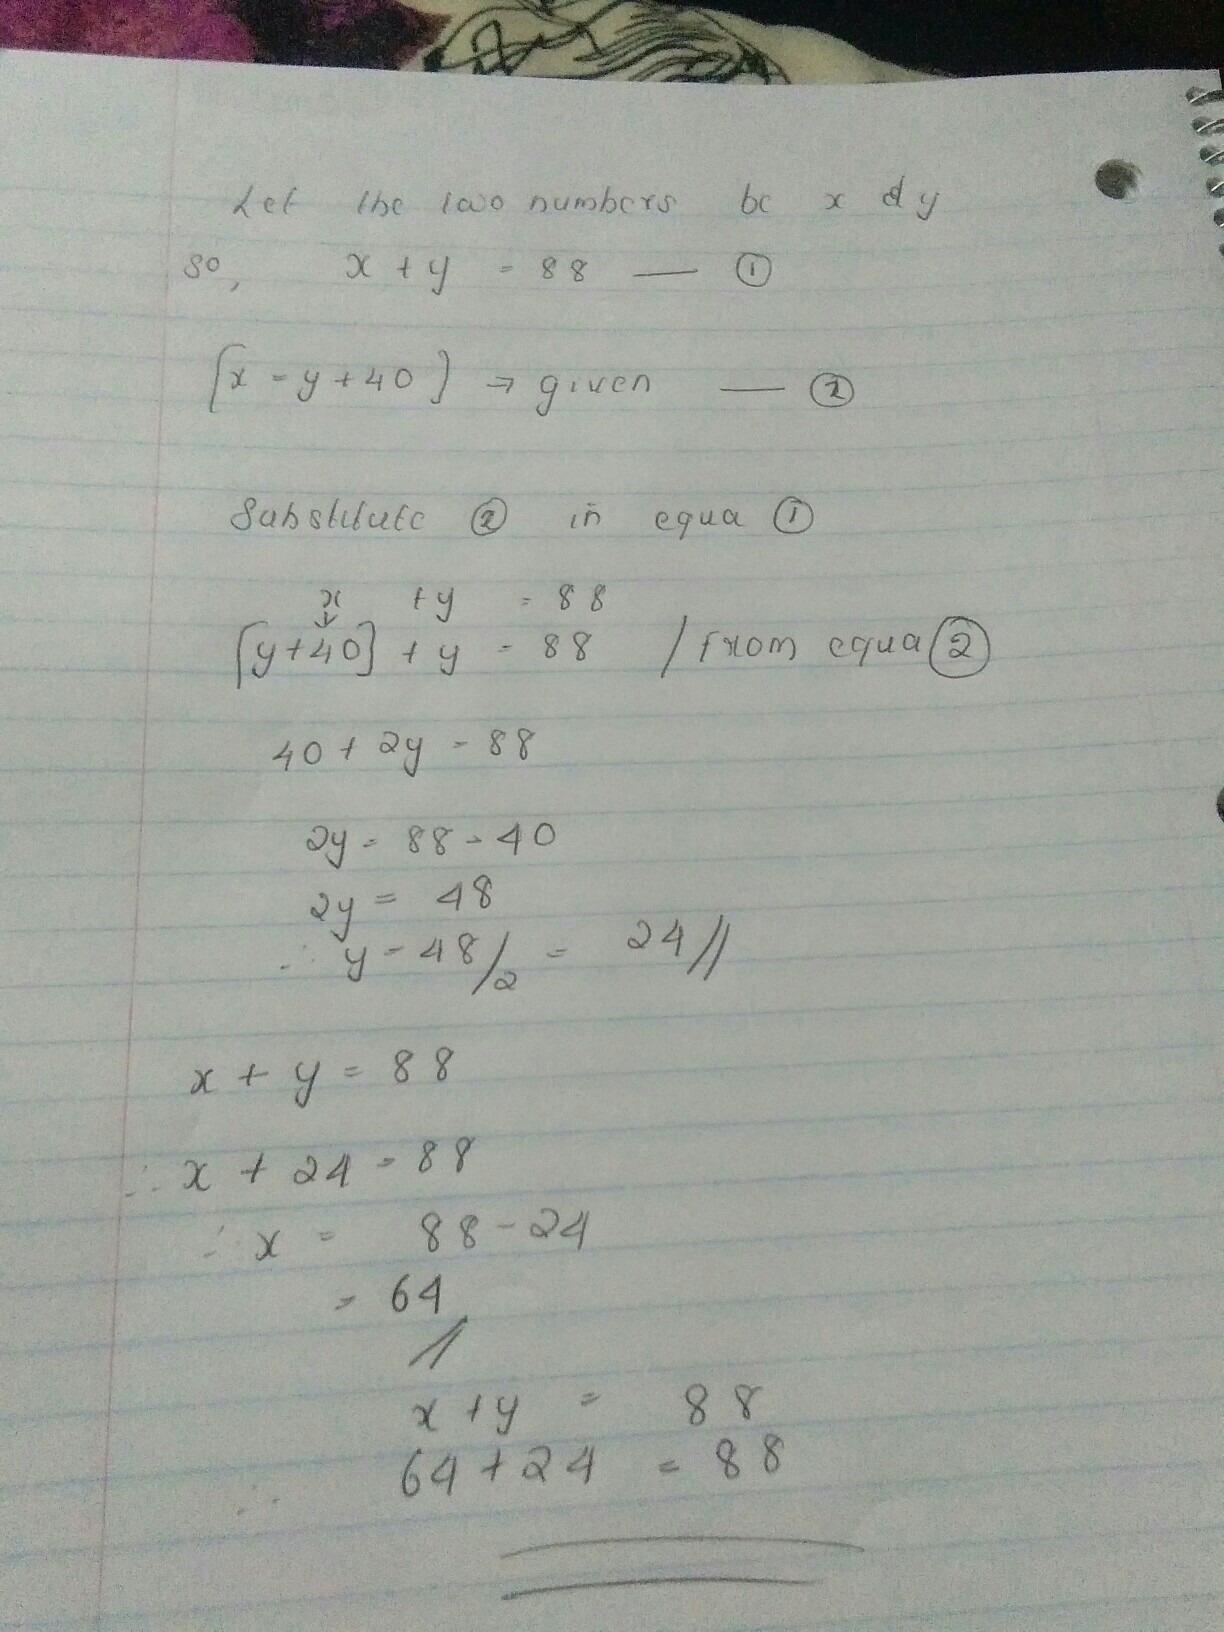 Let the two numbers be x & y
so, x + y = 88 — ①
[x = y + 40] → given — ②
Substitute ② in equa ①
x + y = 88
↓
[y + 40] + y = 88 / from equa ②
40 + 2y = 88
2y = 88 - 40
2y = 48
∴ y = 48/2 = 24//
x + y = 88
∴ x + 24 = 88
∴ x = 88 - 24
= 64
//
x + y = 88
∴ 64 + 24 = 88